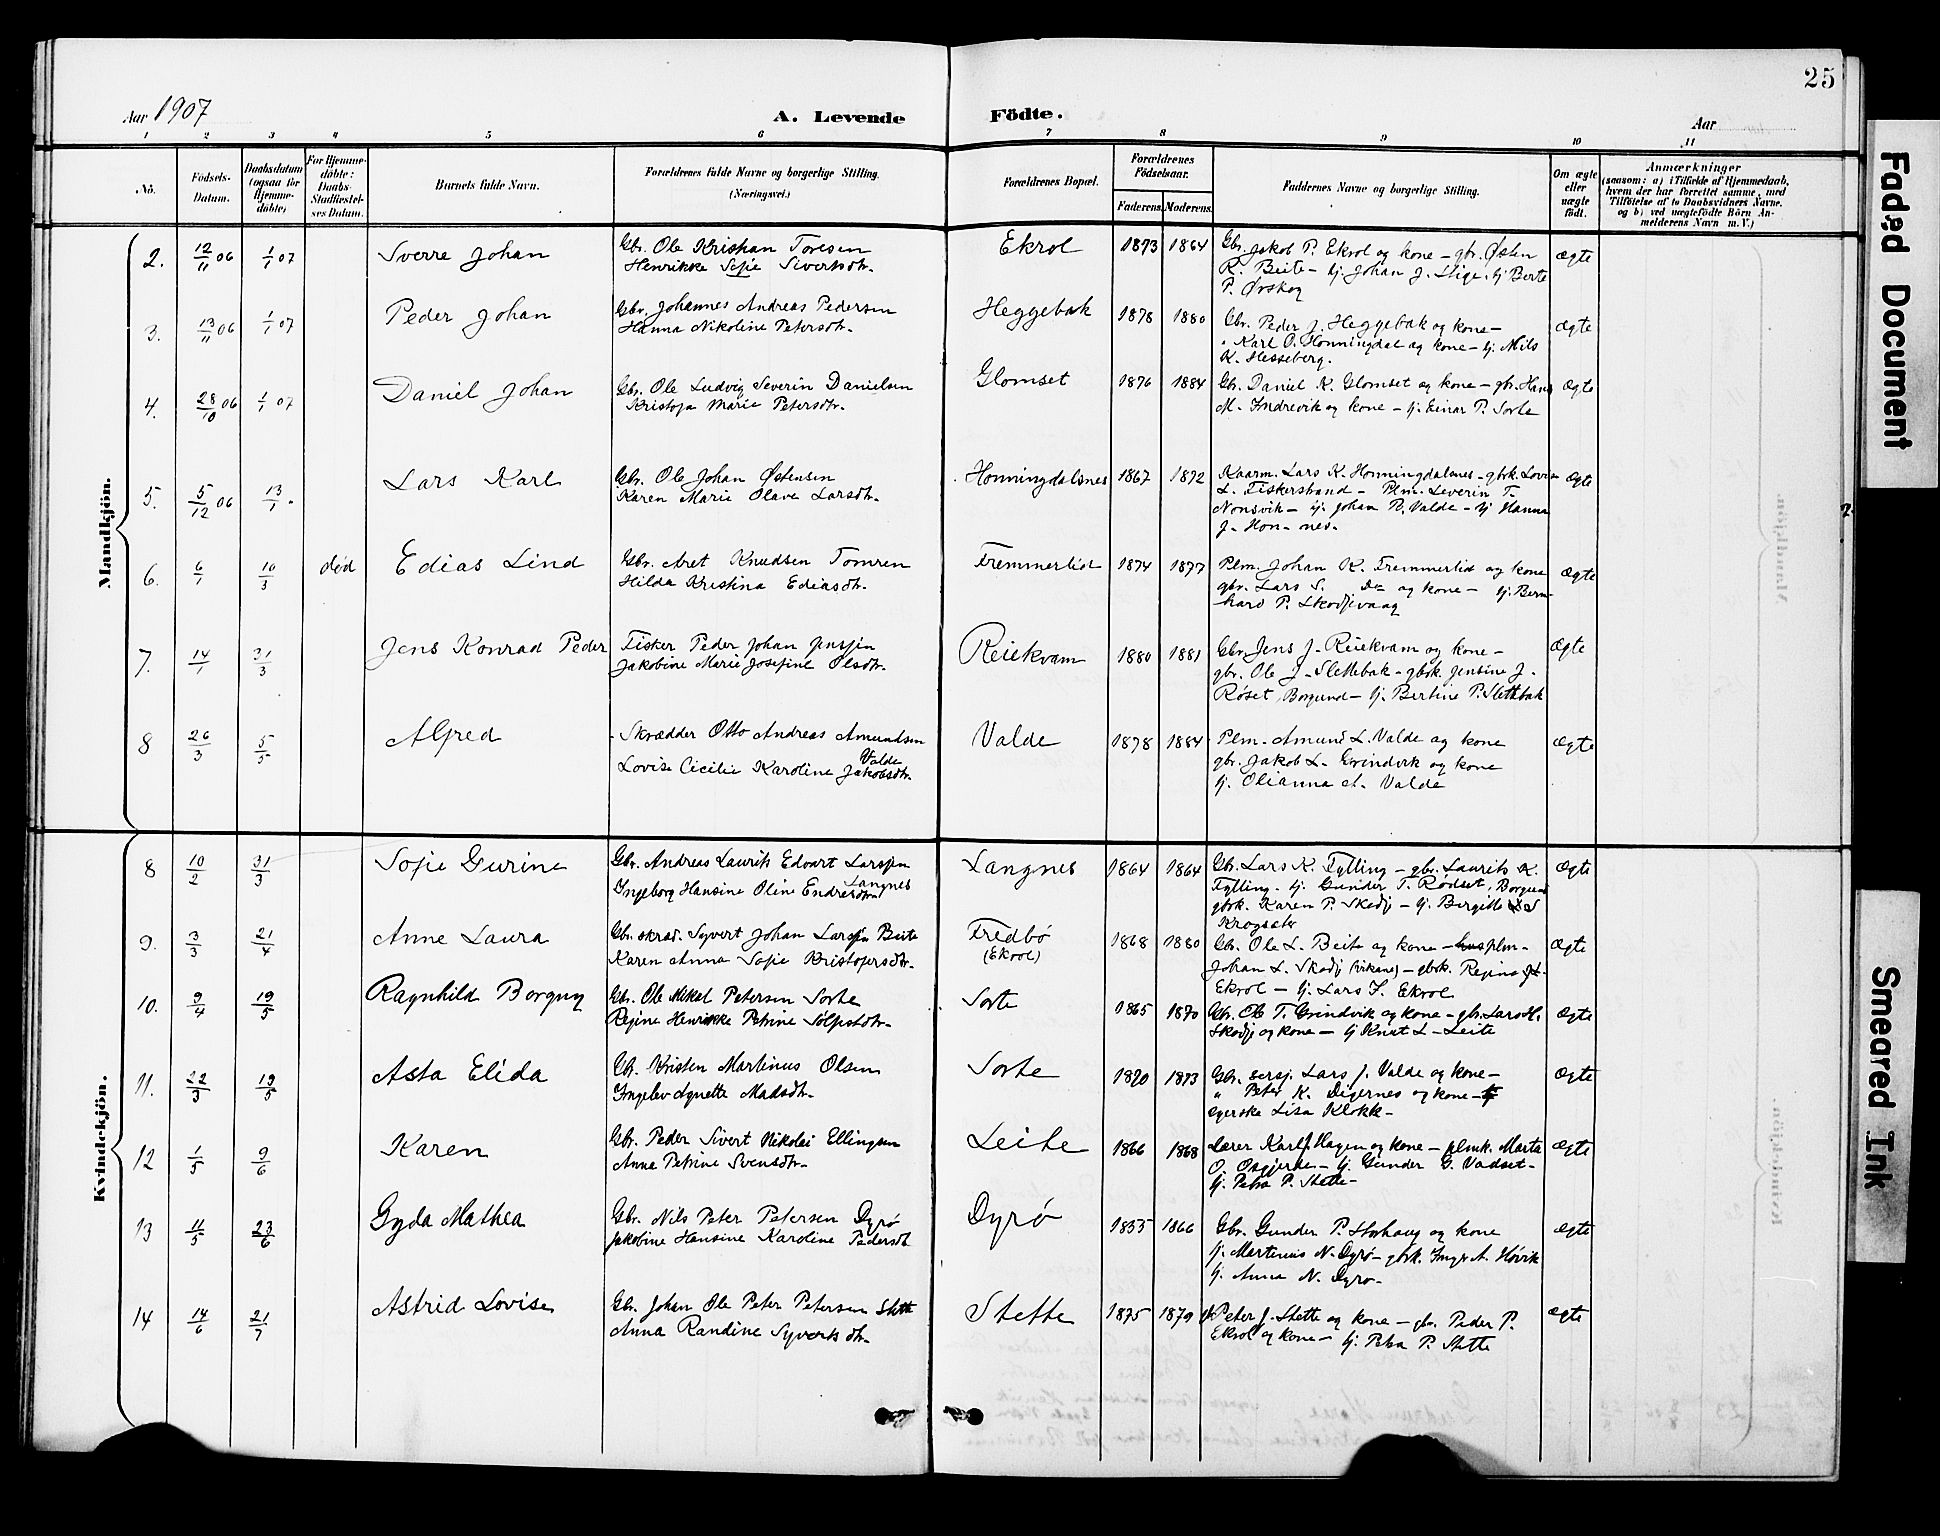 25
Aar 1907
A. Levende Födte.
Aar
1 2 3 4 5 6 7 8 9 10 11
No.
Födsels-Datum.
Daabsdatum (ogsaa for Hjemme-döbte)
For Hjemme-döbte: Daabs-Stadfæstel-ses Datum.
Barnets fulde Navn.
Forældrenes fulde Navne og borgerlige Stilling. (Næringsvei.)
Forældrenes Bopæl.
Forældrenes Födselsaar.
Faderens. Moderens.
Faddernes Navne og borgerlige Stilling.
Om ægte eller uægte födt.
Anmærkninger
(saasom: a) i Tilfælde af Hjemmedaab, hvem der har forrettet samme, med Tilföielse af to Daabsvidners Navne. og b) ved uægtefödte Börn Anmelderens Navn m. V.)
Mandkjön.
2. 12/11 06 1/1 07 Sverre Johan
Gbr. Ole Kristian Toresen
Henrikke Sofie Sivertsdtr.
Ekrol 1873 1864
Gbr. Jakob P. Ekrol og kone – gbr. Østen
R. Beite – Uj. Johan J. Stige. Uj Berte
P. Ørskog
Ægte
3. 13/11 06 1/1 07 Peder Johan
Gbr. Johannes Andreas Pedersen
Hanna Nikoline Petersdtr.
Heggebak 1878 1880
Gbr. Peder J. Heggebak og kone –
" Karl O. Honningdal og kone – Uj. Nils
K. Hesseberg.
Ægte
4. 28/10 06 1/1 07 Daniel Johan
Gbr. Ole Ludvig Severin Danielsen
Kristofa Marie Petersdtr.
Glomset 1876 1884
Gbr. Daniel K. Glomset og kone – gbr. Hans
M. Indrevik og kone – Uj. Einar P. Sorte
Ægte
5. 5/12 06 13/1 Lars Karl
Gbr. Ole Johan Østensen
Karen Marie Olave Larsdtr.
Honningdalsnes 1867 1872
Kaarm. Lars K. Honningdalsnes – gbrk. Lovise
L. Fiskerstrand – Plm. Severin T.
Nonsvik – Uj. Johan R. Valde – Uj Hanna
J. Hon – nes.
Ægte
6. 6/1 10/3 død Edias Lind
Gbr. Aret Knudsen Tomren
Hilda Kristina Ediasdtr.
Fremmerlid 1874 1877
Plm. Johan K. Fremmerlid og kone
gbr. Lars S. Do og kone – Uj. Bern-
hard P. Skodjevaag
Ægte
7. 14/1 31/3 Jens Konrad Peder
Fisker Peder Johan Jenssen
Jakobine Marie Josefine Olsdtr.
Reiekvam 1880 1881
Gbr. Jens J. Reiekvam og kone –
gbr. Ole J. Slettebak – gbrk. Jensine J.
Røset, Borgund – Uj. Bertine P. Slettebak
Ægte
8 26/3 5/5 Alfred
Skrædder Otto Andreas Amundsen
Valde
Lovise Cicilie Karoline Jakobsdtr.
Valde 1878 1884
Plm. Amund L. Valde og kone
gbr. Jakob L. Grindvik og kone
Uj. Olianna A. Valde
Ægte
Kvindekjön.
8 10/2 31/3 Sofie Gurine
Gbr. Andreas Laurits Edvart Larssen
Langnes
Ingeborg Hansine Oline Endresdtr.
Langnes 1864 1864
Gbr. Lars K. Fylling – gbr. Laurits K.
Fylling. Uj. Gunder T. Rødset, Borgund
gbrk. Karen P. Skodje – Uj. Birgitte S
Krogseter
Ægte
9. 3/3 21/4 Anne Laura
Gbr. skræd. Syvert Johan Larsen Beite
Karen Anna Sofie Kristofersdtr.
Fredbø
(Ekrol)
1868 1880
Gbr. Ole L. Beite og kone – plm.
Johan L. Skodj – gbrk. Regine
Ekrol – Uj. Lars J. Ekrol
Ægte
10. 9/4 19/5 Ragnhild Borgny
Gbr. Ole Mikal Petersen Sorte
Regine Henrikke Petrine
Sorte 1865 1870
Gbr. Ole T. Grindvik og kone – gbr. Lars H.
Skodje og kone – Uj Knut L. Leite
Ægte
11. 22/3 19/5 Asta Elida
Gbr. Kristen Martinus Olsen
Ingelev Agnette Madsdtr.
Sorte 1870 1873
Gbr. sersj. Lars J. Valde og kone –
" Peter K. Digernes og kone –
Lisa Klokk –
Ægte
12 1/5 9/6 Karen
Gbr. Peder Sivert Nikolai Ellingsen
Anne Petrine Svensdtr.
Leite 1866 1868
Lærer Karl J. Hagen og kone – plmk. Marta
O. – Uj. Gunder G. Vadset –
Uj. Petra P. Stette –
Ægte
13 11/5 23/6 Gyda Mathea
Gbr. Nils Peter Petersen Dyrø
Jakobine Hansine Karoline Pedersdtr
Dyrø 1855 1866
Gbr. Gunder P. Storhaug og kone
Uj. Martinus N. Dyrø – gbrk. Inger A. Høvik
Uj. Anna N. Dyrø –
Ægte
14 14/6 21/7 Astrid Lovise
Gbr. Johan Ole Peter Petersen Stette
Anna Randine Syvertsdtr.
Stette 1875 1879
Peter J. Stette og kone – gbr. Peder P.
Ekrol og kone – Uj. Petra P. Stette
Ægte
Faded Document
Smeared Ink